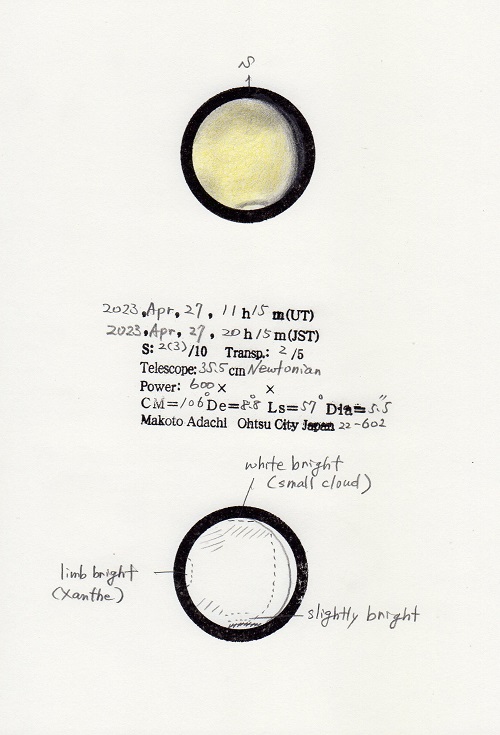 S
2023, Apr, 27, 11 h 15 m(UT)
2023, Apr, 27, 20 h 15 m(JST)
S: 2(3)/10 Transp.: 2 /5
Telescope: 35.5 cm Newtonian
Power: 600 × ×
CM=106° De=8.8° Ls=57° Dia=5.5"
Makoto Adachi Ohtsu City Japan 22-602
white bright
(small cloud)
limb bright
(Xanthe)
slightly bright